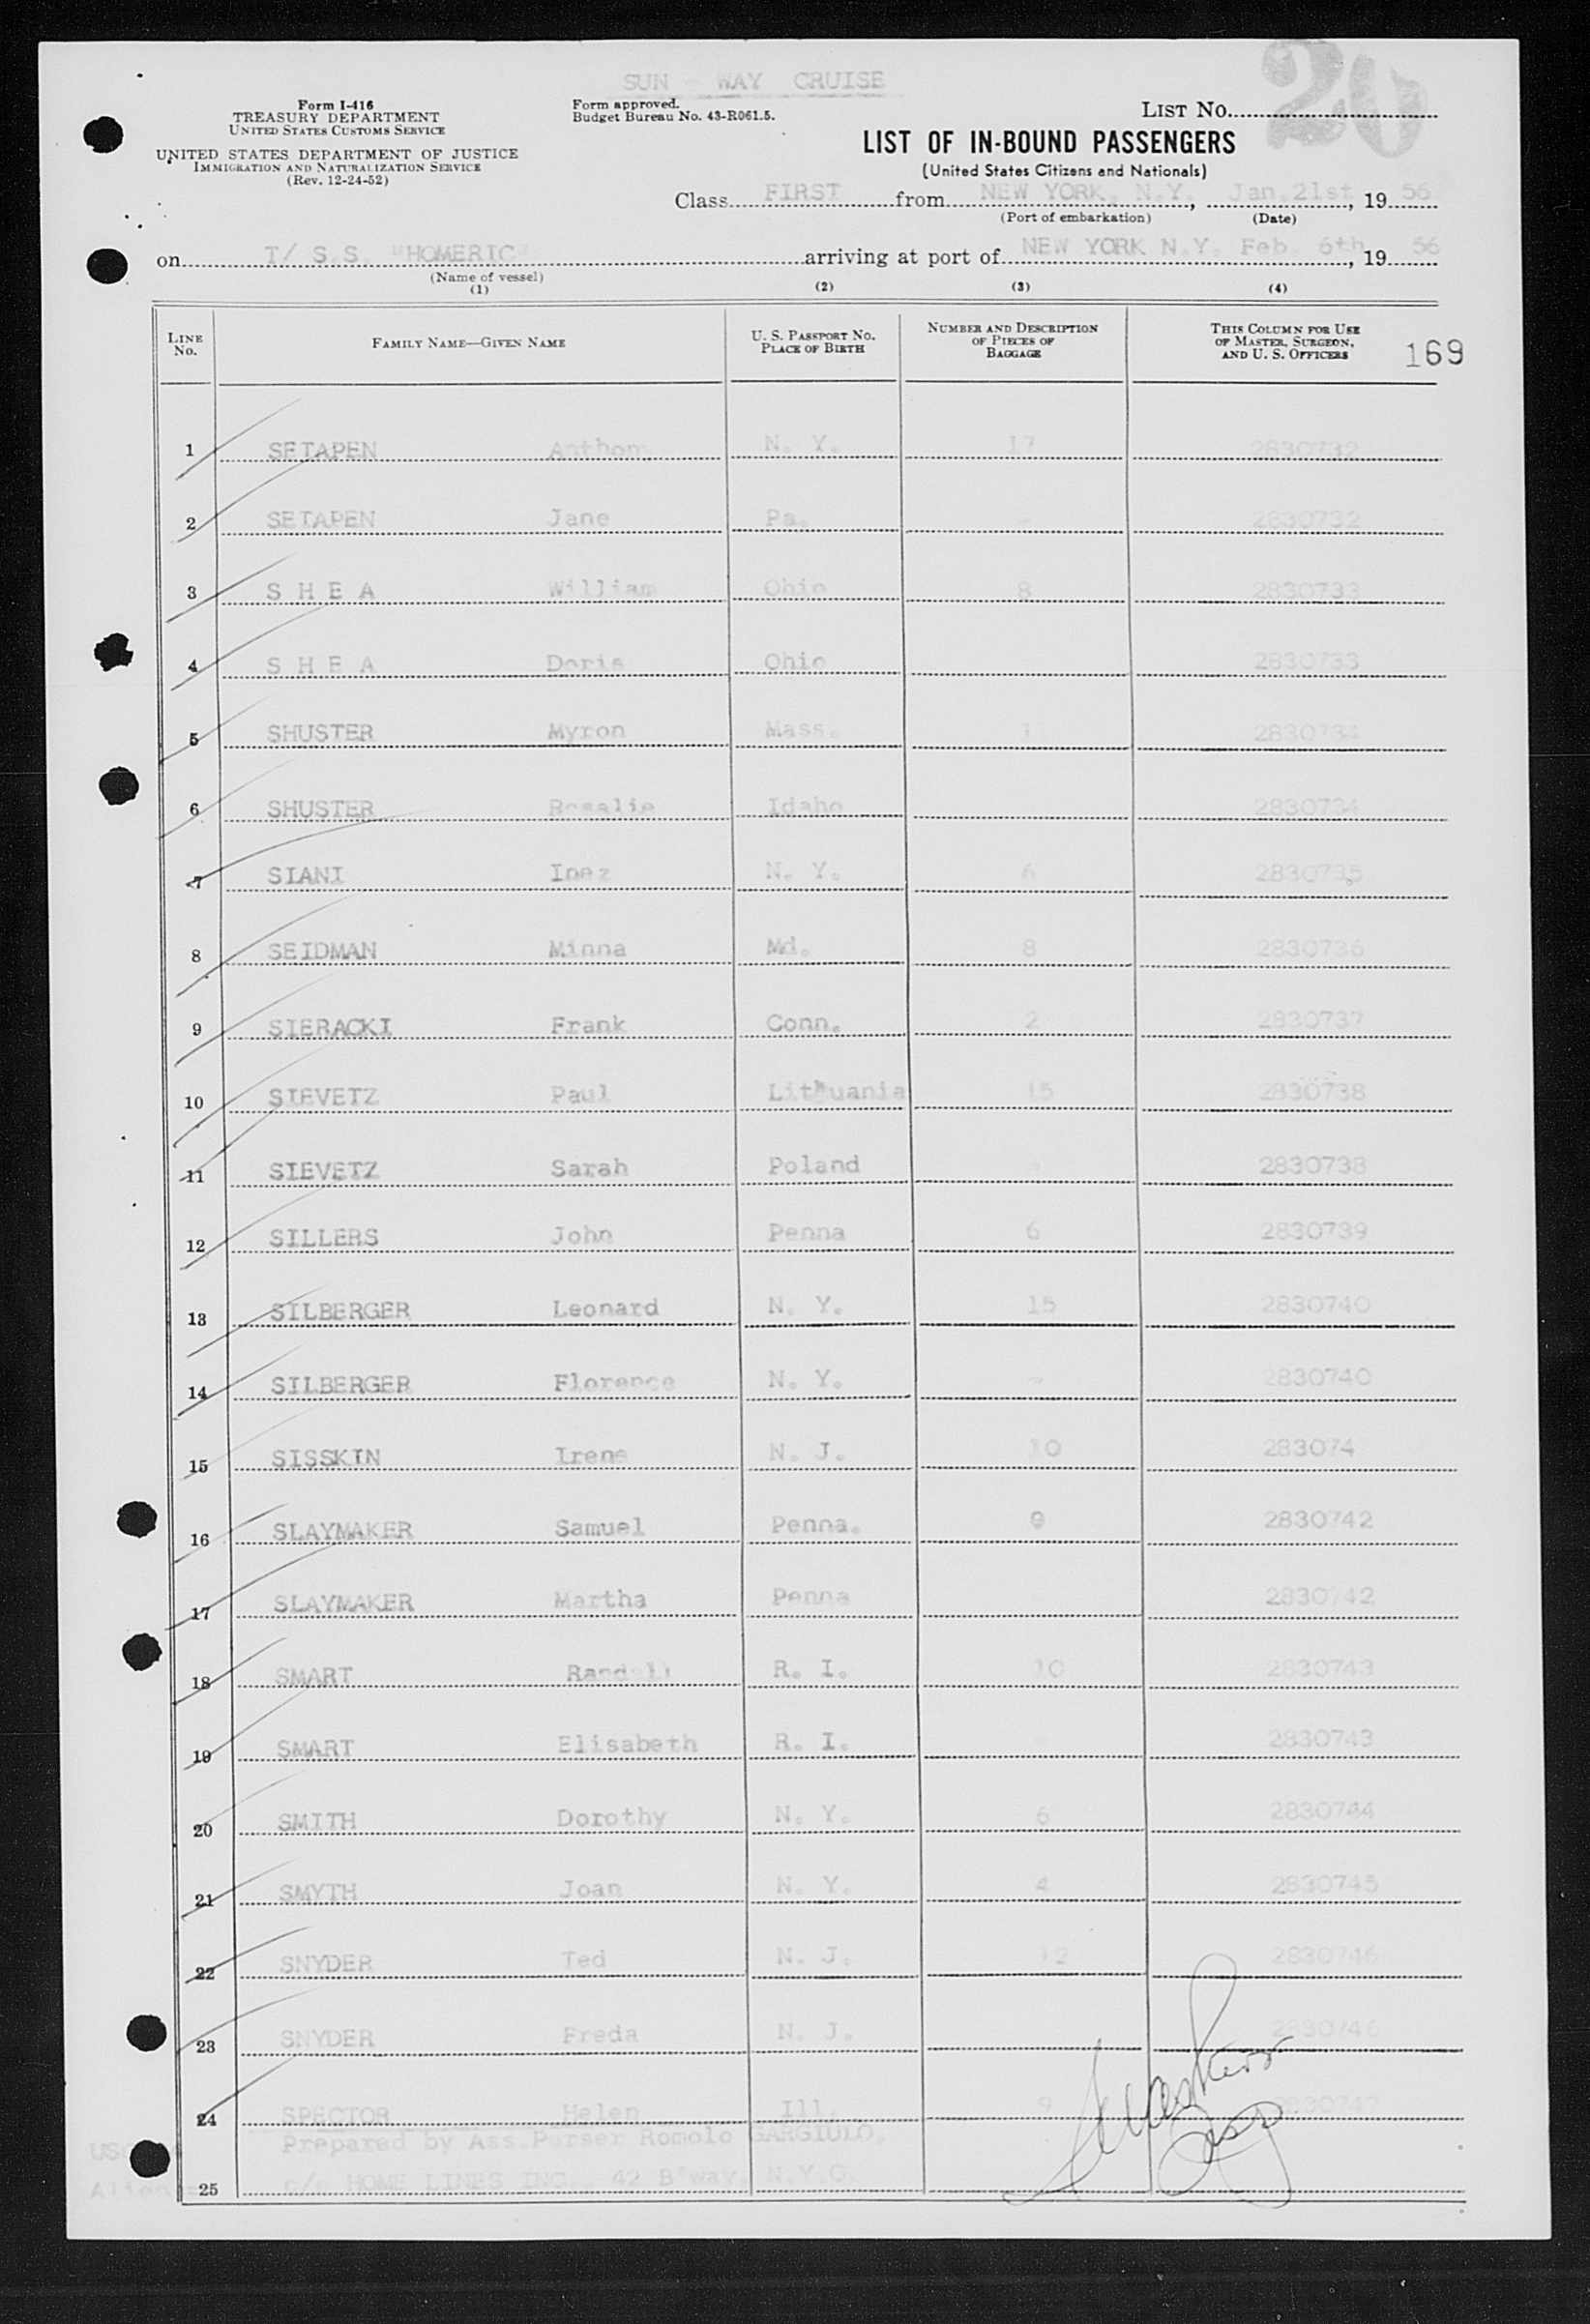 SUN - WAY CRUISE
20
Form I-416
TREASURY DEPARTMENT
UNITED STATES CUSTOMS SERVICE
UNITED STATES DEPARTMENT OF JUSTICE
IMMIGRATION AND NATURALIZATION SERVICE
(Rev. 12-24-52)
Form approved.
Budget Bureau No. 43-R061.5.
LIST NO.
LIST OF IN-BOUND PASSENGERS
(United States Citizens and Nationals)
Class FIRST from NEW YORK, N.Y., Jan. 21st, 19 56
(Port of embarkation) (Date)
on T/ S.S. "HOMERIC" arriving at port of NEW YORK N.Y. Feb. 6th, 19 56
(Name of vessel)
(1) (2) (3) (4)
LINE No. FAMILY NAME—GIVEN NAME U. S. PASSPORT NO. PLACE OF BIRTH NUMBER AND DESCRIPTION OF PIECES OF BAGGAGE THIS COLUMN FOR USE OF MASTER, SURGEON, AND U. S. OFFICERS 169
1 SETAPEN Anthon N. Y. 17 2830732
2 SETAPEN Jane Pa. - 2830732
3 S H E A William Ohio 8 2830733
4 S H E A Doris Ohio 2830733
5 SHUSTER Myron Mass. 2830734
6 SHUSTER Rosalie Idaho 2830734
7 SIANI Inez N. Y. 6 2830735
8 SEIDMAN Minna Md. 8 2830736
9 SIERACKI Frank Conn. 2 2830737
10 SIEVETZ Paul Lithuania 15 2830738
11 SIEVETZ Sarah Poland 2830738
12 SILLERS John Penna 6 2830739
13 SILBERGER Leonard N. Y. 15 2830740
14 SILBERGER Florence N. Y. - 2830740
15 SISSKIN Irene N. J. 10 283074
16 SLAYMAKER Samuel Penna. 9 2830742
17 SLAYMAKER Martha Penna 2830742
18 SMART Randall R. I. 10 2830743
19 SMART Elisabeth R. I. 2830743
20 SMITH Dorothy N. Y. 6 2830744
21 SMYTH Joan N. Y. 4 2830745
22 SNYDER Ted N. J. 12 2830746
23 SNYDER Freda N. J. 2830746
24 SPECTOR Helen Ill. 9 2830747
Prepared by Ass.Purser Romolo GARGIULO,
25 c/o HOME LINES INC., 42 B'way, N.Y.C.